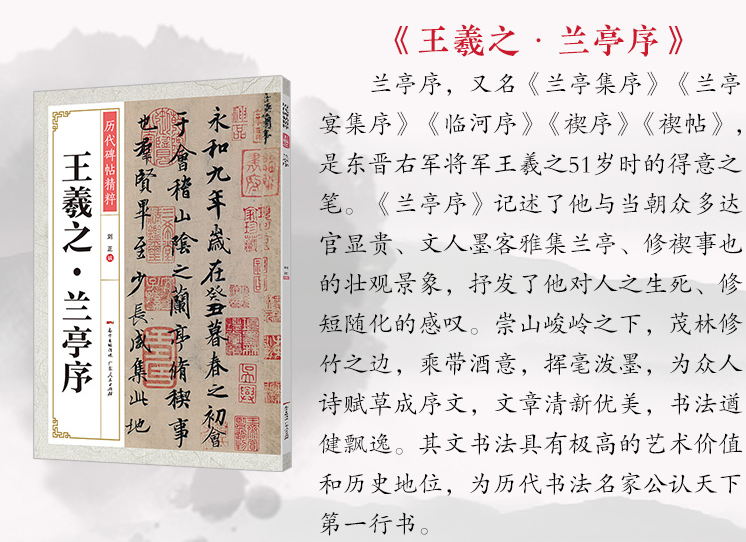 《王羲之·兰亭序》
兰亭序，又名《兰亭集序》《兰亭
宴集序》《临河序》《禊序》《禊帖》，
是东晋右军将军王羲之51岁时的得意之
笔。《兰亭序》记述了他与当朝众多达
官显贵、文人墨客雅集兰亭、修禊事也
的壮观景象，抒发了他对人之生死、修
短随化的感叹。崇山峻岭之下，茂林修
竹之边，乘带酒意，挥毫泼墨，为众人
诗赋草成序文，文章清新优美，书法遒
健飘逸。其文书法具有极高的艺术价值
和历史地位，为历代书法名家公认天下
第一行书。
历代碑帖精粹
王羲之·兰亭序
永和九年歲在癸丑暮春之初會
于會稽山陰之蘭亭脩稧事
也羣賢畢至少長咸集此地